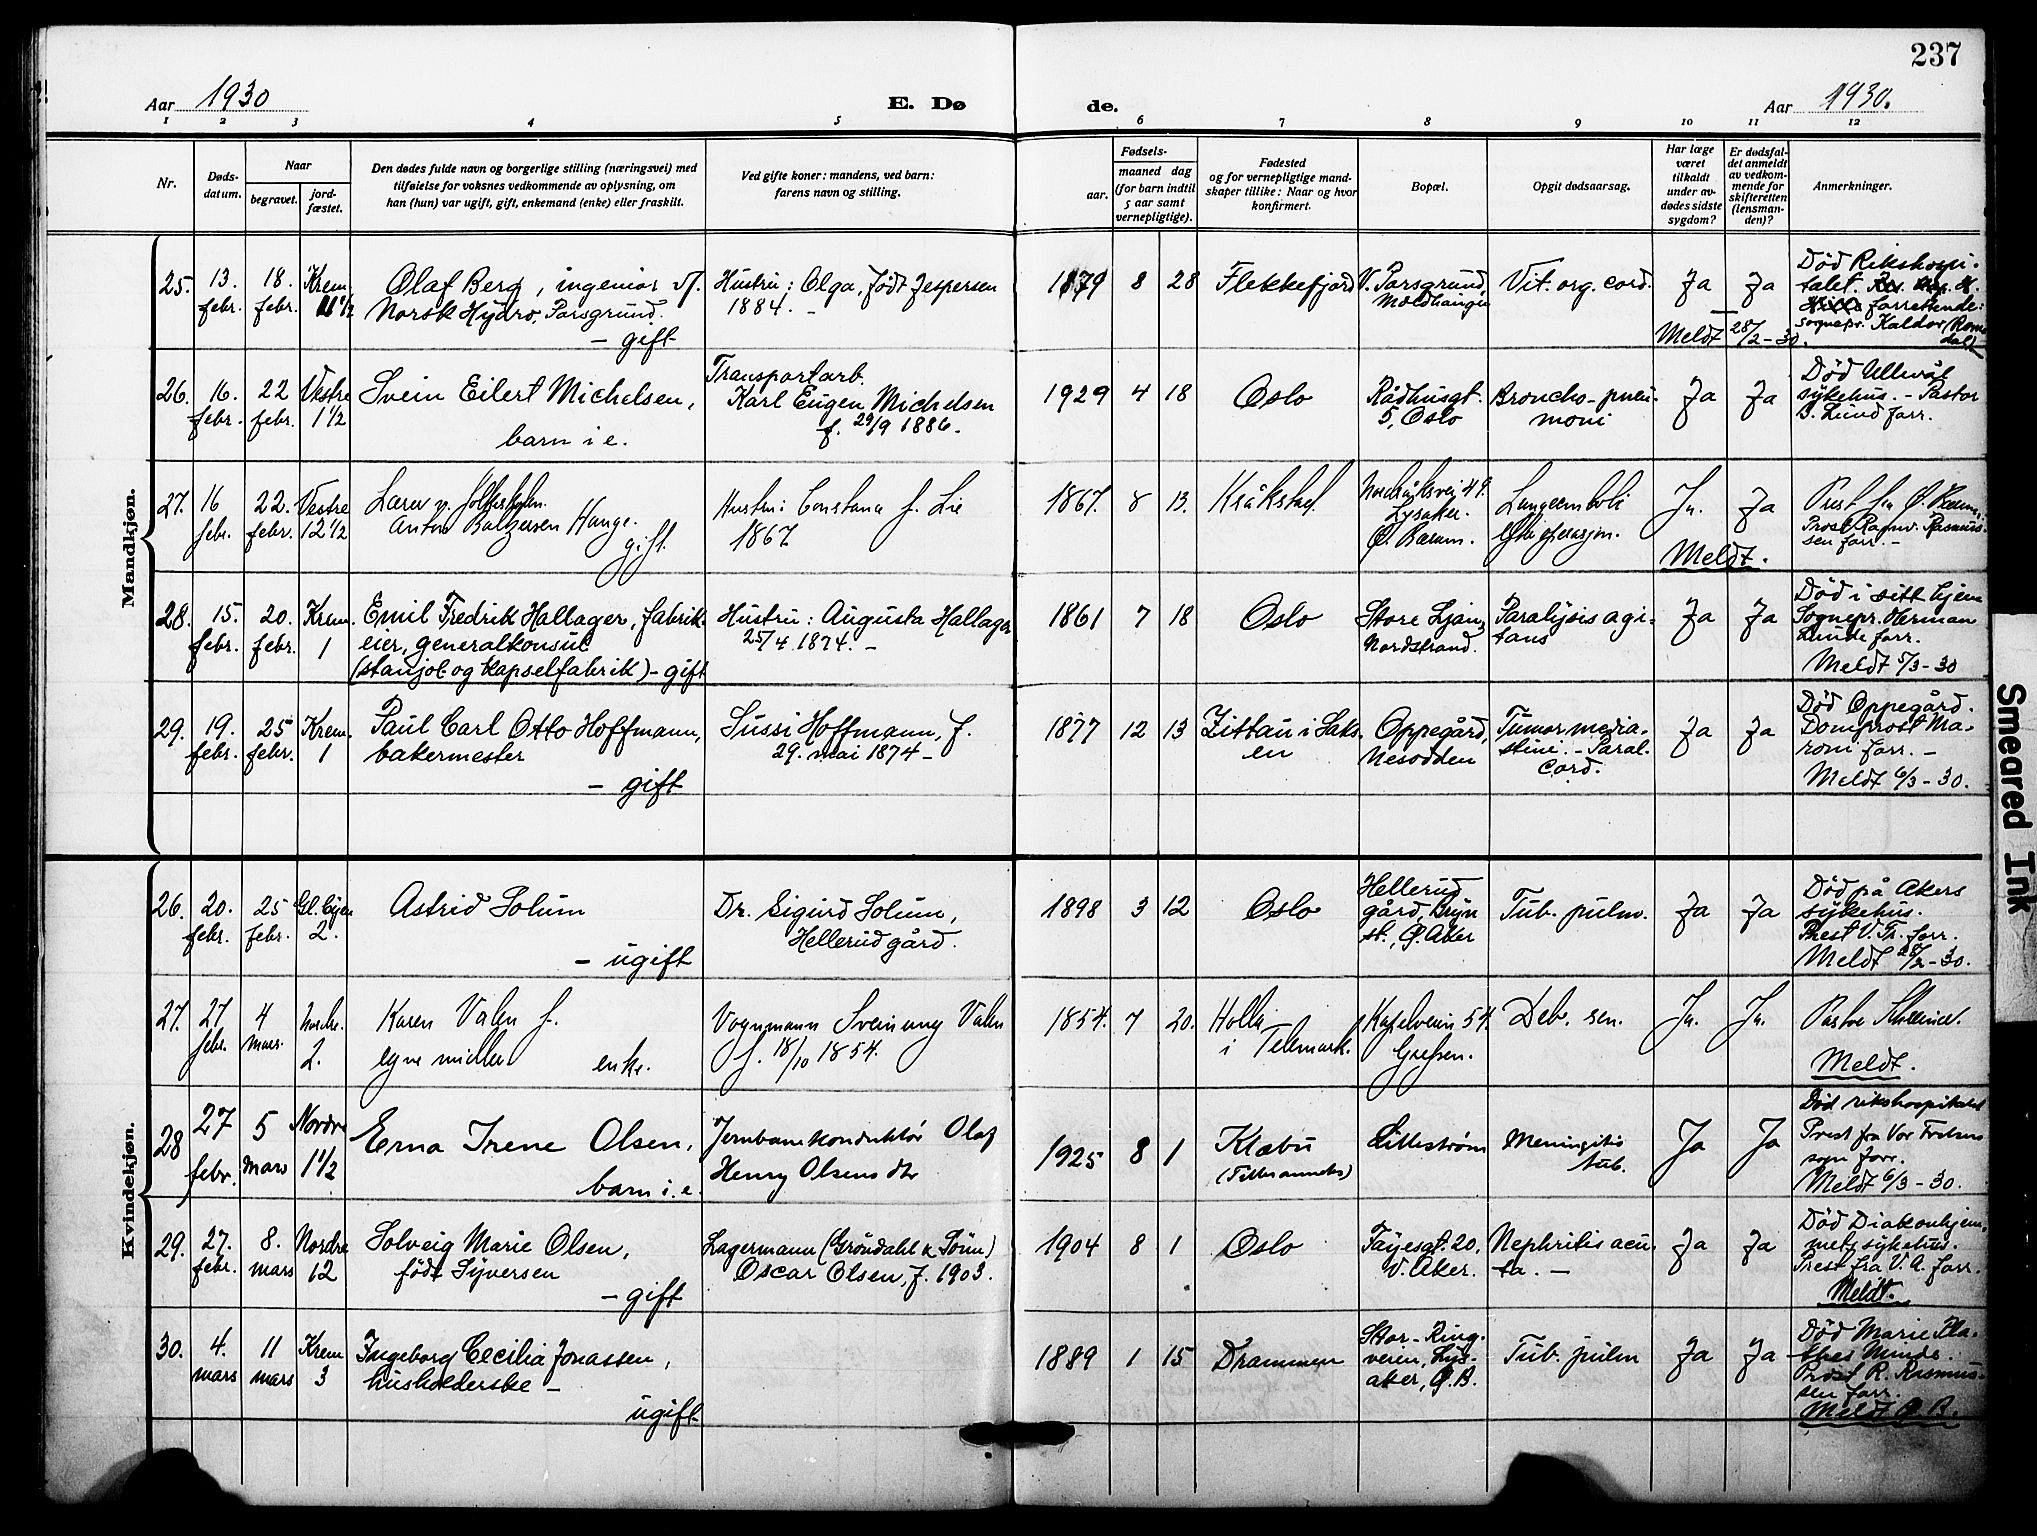 237
Aar 1930
E. Dø
de.
Aar 1930.
1 2 3 4 5 6 7 8 9 10 11 12
Nr.
Døds-
datum.
Naar
begravet.
jord-
fæstet.
Den dødes fulde navn og borgerlige stilling (næringsvei) med
tilføielse for voksnes vedkommende av oplysning, om
han (hun) var ugift, gift, enkemand (enke) eller fraskilt.
Ved gifte koner: mandens, ved barn:
farens navn og stilling.
Fødsels-
aar.
maaned dag
(for barn indtil
5 aar samt
vernepligtige).
Fødested
og for vernepligtige mand-
skaper tillike: Naar og hvor
konfirmert.
Bopæl.
Opgit dødsaarsag.
Har læge
været
tilkaldt
under av-
dødes sidste
sygdom?
Er dødsfal-
det anmeldt
av vedkom-
mende for
skifteretten
(lensman-
den)?
Anmerkninger.
Mandkjøn.
25. 13. febr. 18. febr. Krem. 11 1/2
Olaf Berg, ingeniør v/
Norsk Hydro, Porsgrund.
- gift
Hustru: Olga, født Jespersen
1884. -
1879 8 28 Flekkefjord
V. Porsgrund,
Vit. org. cord.
Ja Ja
Meldt 28/2-30.
Død Rikshospi-
talet.
forrettende:
sognepr. Kaldor
26. 16. febr. 22 febr. Vestre 1 1/2
Svein Eilert Michelsen,
barn i e.
Transportarb.
Karl Eugen Michelsen
f. 29/9 1886.
1929 4 18 Oslo
Rådhusgt.
5, Oslo
Broncho-pneu-
moni
Ja Ja
Død Ullevål
sykehus. - Pastor
B. Lund forr.
27. 16 febr. 22. febr. Vestre 12 1/2
Lærer v.
Anton Baltzersen Hauge.
gift.
Hustru: Constance f. Lie
1867
1867. 8 13. Kråkstad.
Nordråksvei 49.
Lysaker.
Ø. Bærum.
Lungeemboli
efter operasjon.
Ja. Ja
Meldt.
Prest fra Ø. Bærum.
Prost Ragnv. Rasmus-
sen forr. -
28. 15. febr. 20. febr. Krem. 1
Emil Fredrik Hallager, fabrik-
eier, generalkonsul
(stanjol- og kapselfabrik) - gift
Hustru: Augusta Hallager
25/4 1874. -
1861 7 18 Oslo
Store Ljan,
Nordstrand.
Paralysis agi-
tans
Ja Ja
Død i sitt hjem
Sognepr. Herman
Lunde forr.
Meldt 5/3-30
29. 19. febr. 25 febr. Krem. 1
Paul Carl Otto Hoffmann,
bakermester
- gift
Sussi Hoffmann, f.
29. mai 1874 -
1877 12 13 Zittau i Saks-
en
Oppegård,
Nesodden
Tumor media-
stini. - Paral.
Cord.
Ja Ja
Død Oppegård.
Domprost Ma-
roni forr. -
Meldt 6/3-30.
Kvindekjøn.
26. 20. febr. 25 febr. Gl. Aker 2.
Astrid Solum
- ugift
Dr. Sigurd Solum,
Hellerud gård.
1898 3 12 Oslo
Hellerud
gård, Bryn
st., Ø. Aker
Tub. pulm.
Ja Ja
Død på Akers
sykehus.
Prest V. Fr. forr.
Meldt 28/2-30.
27. 27 febr. 4 mars. Nordre. 2.
Karen Valen f.
egne midler enke.
Vognmann Sveinung Valen
f. 18/10 1854.
1854. 7 20. Holla
i Telemark.
Kapelveien 54.
Grefsen.
Deb. sen.
Ja. Ja.
Pastor
Meldt.
28 27 febr. 5 mars Nordre 1 1/2
Erna Irene Olsen,
barn i. e.
Jernbanekonduktør Olaf
Henry Olsens dtr
1925 8 1 Klæbu
Lillestrøm
Meningitis
tub.
Ja Ja
Død rikshospitalet
Prest fra Vor Frelsers
sogn forr.
Meldt 6/3-30.
29. 27. febr. 8. mars Nordre 12
Solveig Marie Olsen,
født Syversen
- gift
Lagermann (Grøndahl & Søn)
Oscar Olsen, f. 1903.
1904 8 1 Oslo
Fayesgt. 20,
V. Aker.
Nephritis acu-
ta. -
Ja Ja
Død Diakonhjem-
mets sykehus.
Prest fra V. A. forr.
Meldt.
30. 4. mars 11 mars Krem 3
Ingeborg Cecilia Jonassen,
husholderske -
ugift
1889 1 15 Drammen
Stor-Ring-
veien, Lys-
aker, Ø. B.
Tub. pulm
Ja Ja
Død Marie Pla-
thes Minde.
Prost R. Rasmus-
sen forr.
Meldt Ø. B.
Smeared Ink